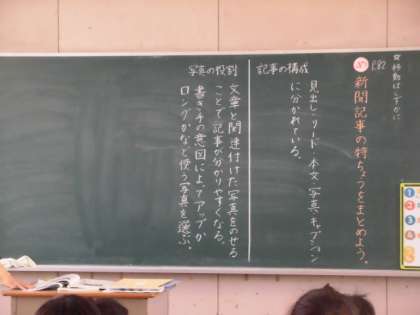 P.82
新聞記事の特ちょうをまとめよう。
記事の構成
見出し・リード・本文・写真・キャプション
に分かれている。
写真の役割
文章と関連付けた写真をのせる
ことで記事が分かりやすくなる。
書き手の意図によってアップか
ロングかなど使う写真を選ぶ。
①
②
③
④